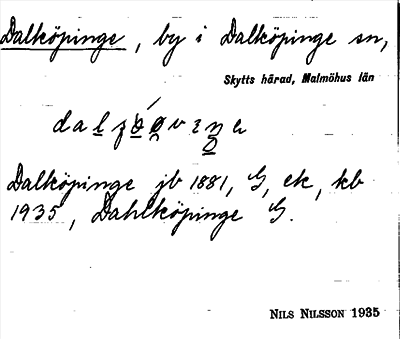 Dalköpinge, by i Dalköpinge sn,
Skytts härad, Malmöhus län
Dalköpinge jb 1881, G, ek, kb
1935, Dahlköpinge G.
NILS NILSSON 1935